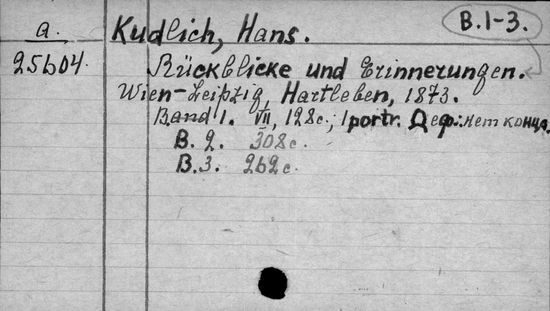 a. Kudlich, Hans. B.1-3.
25604. Rückblicke und Erinnerungen.
Wien-Leipzig, Hartleben, 1873.
Band 1. VII, 128c.; 1 portr. Деф.: нет конца.
B. 2. 308c.
B. 3. 262c.